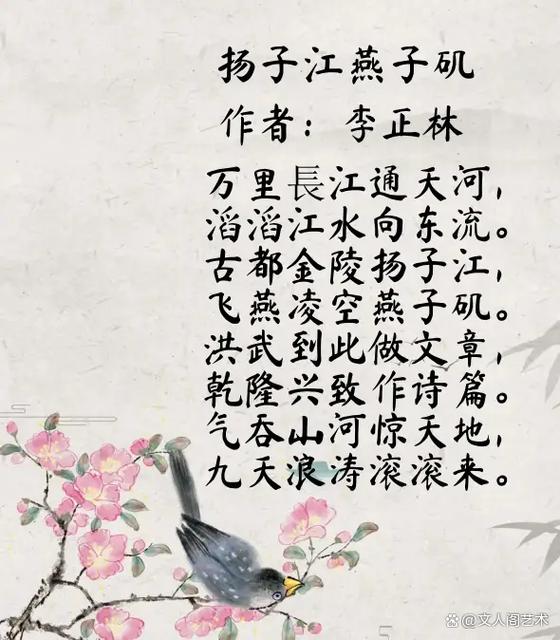 扬子江燕子矶
作者：李正林
万里長江通天河，
滔滔江水向东流。
古都金陵扬子江，
飞燕凌空燕子矶。
洪武到此做文章，
乾隆兴致作诗篇。
气吞山河惊天地，
九天浪涛滚滚来。
@文人阁艺术